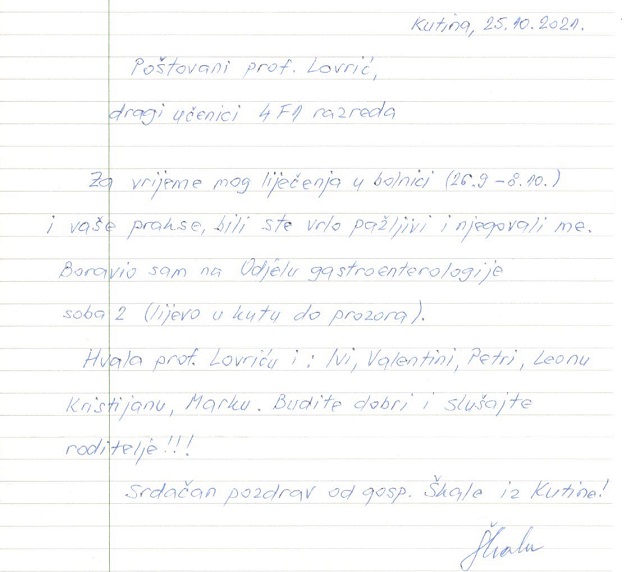 Kutina, 25.10.2021.
Poštovani prof. Lovrić,
dragi učenici 4F1 razreda
Za vrijeme mog liječenja u bolnici (26.9 – 8.10.)
i vaše prakse, bili ste vrlo pažljivi i njegovali me.
Boravio sam na Odjelu gastroenterologije
soba 2 (lijevo u kutu do prozora).
Hvala prof. Lovriću i : Ivi, Valentini, Petri, Leonu
Kristijanu, Marku. Budite dobri i slušajte
roditelje!!!
Srdačan pozdrav od gosp. Škale iz Kutine!
Škale